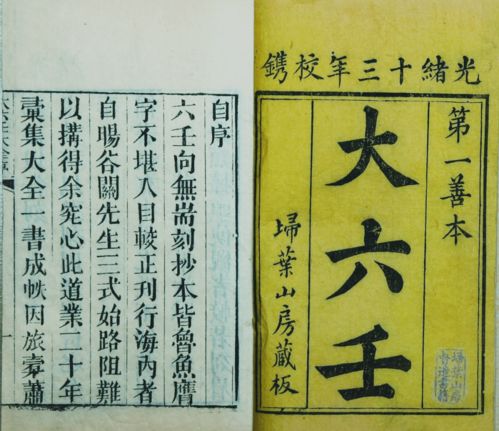 光緒十三年校鐫
第一善本
大六壬
埽葉山房藏板
自序
六壬向無耑刻抄本皆魯魚贋
字不堪入目較正刊行海內者
自暘谷關先生三式始路阻難
以搆得余究心此道業二十年
彚集大全一書成帙因旅橐蕭